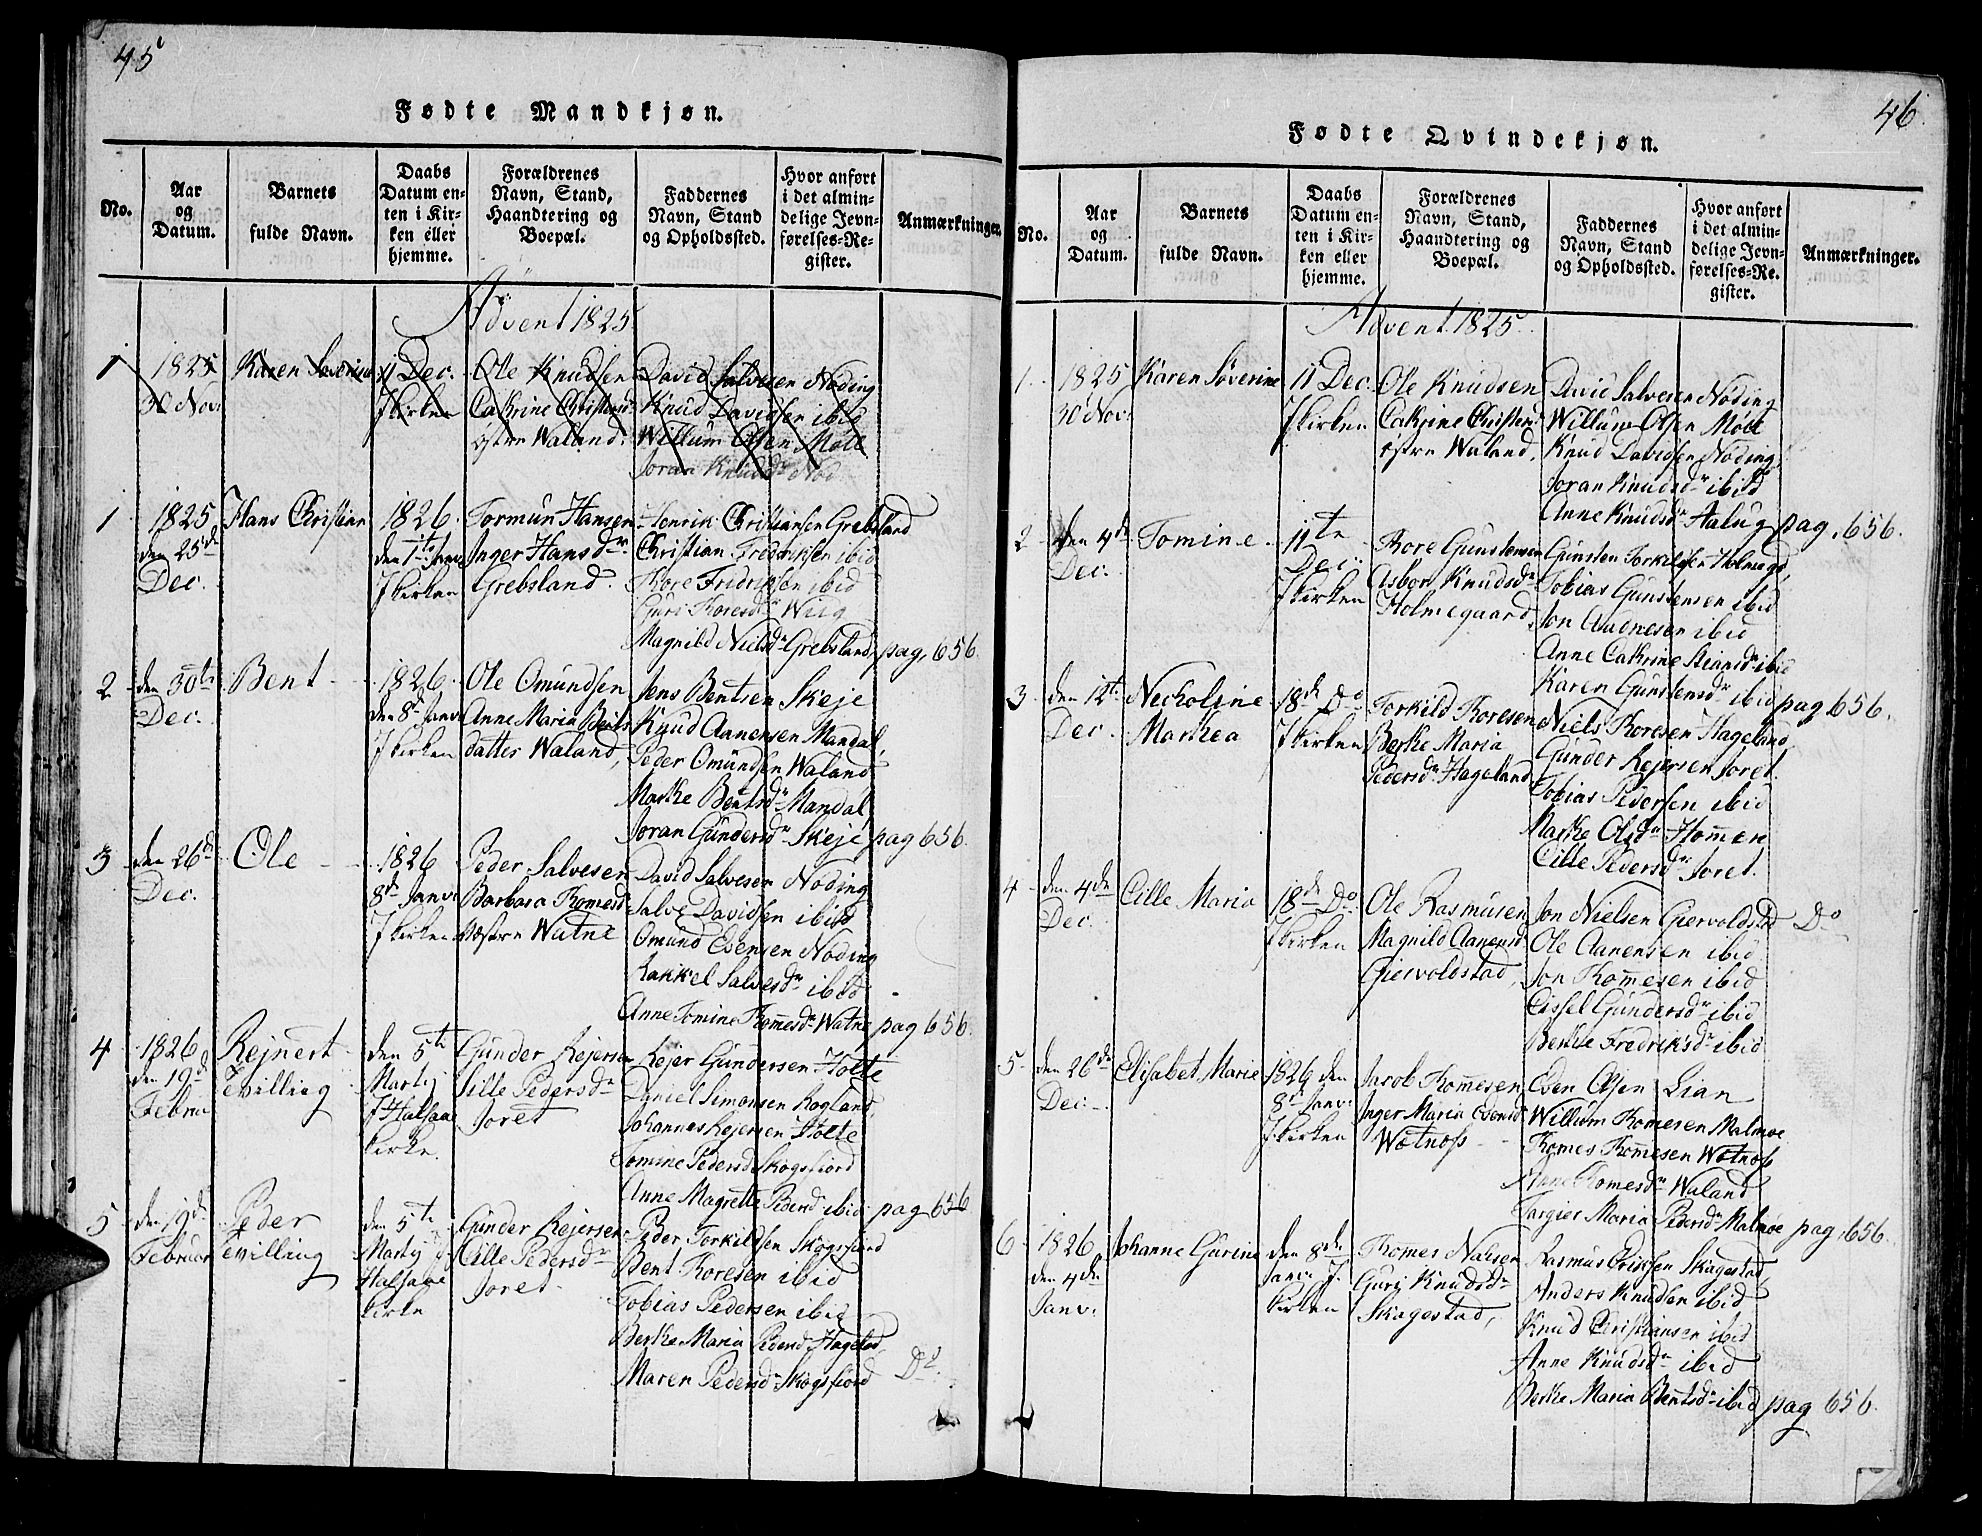 45
Fødte Mandkjøn.
No.
Aar
og
Datum.
Barnets
fulde Navn.
Daabs
Datum en-
ten i Kir-
ken eller
hjemme.
Forældrenes
Navn, Stand,
Haandtering og
Boepæl.
Faddernes
Navn, Stand
og Opholdssted.
Hvor anført
i det almin-
delige Jevn-
førelses-Re-
gister.
Anmærkninger.
Advent 1825.
1
1825
30 Nov.
Karen Søverine
11 Dec.
I kirken
Ole Knudsen
Cathrine Christensd.
østre Waland.
David Salvesen Nøding
Knud Davidsen ibid
Willum Olsen Møll
Joran Knudsdr Nød
1
1825
den 25de
Dec.
Hans Christian
1826.
den 1ste Janv
I kirken
Tormun Hansen
Inger Hansdr
Grebsland.
Henrik Christiansen Grebsland
Christian Fredriksen ibid
Tore Fridriksen ibid
Guri Toresdr Wiig
Magnild Nielsdr Grebsland
pag. 656.
2
den 30te
Dec.
Bent
1826.
den 8de Janv
I kirken
Ole Omundsen
Anne Maria Bents
datter Waland,
Jens Bentsen Skeje
Knud Aanensen Mandal,
Peder Omundsen Waland
Marthe Bentsdr Mandal,
Joran Gundersdr Skeje
pag 656.
3
den 26de
Dec.
Ole
1826
8de Janv.
I kirken
Peder Salvesen
Barbara Thomesd
Wæstre Watne
David Salvesen Nøding
Salve Davidsen ibid
Omund Evensen Nøding
Rakkel Salvesdr ibid
Anne Tomine Thomesdr Watne
pag 656.
4
1826
den 19de
Febru
Rejnert
Tvilling
den 5te
Martij
I Halsaae
kirke.
Gunder Rejersen
Sille Pedersdr
Joret
Rejer Gundersen Holte
Daniel Simonsen Rogland,
Johannes Rejersen Holte
Tomine Pedersd Skogsfiord
Anne Magrette Pedersd ibid
pag 656
5
den 19de
Februar
Peder
Tvilling
den 5te
Martij I
Halsaae
kirke
Gunder Rejersen
Cille Pedersdr
Joret
Peder Torkildsen Skogsfiord
Bent Toresen ibid
Tobias Pedersen ibid
Berthe Maria Pedersd Hageland,
Maren Pedersdr Skogsfiord
Do.
46.
Fødte Qvindekjøn.
No.
Aar
og
Datum.
Barnets
fulde Navn.
Daabs
Datum en-
ten i Kir-
ken eller
hjemme.
Forældrenes
Navn, Stand,
Haandtering og
Boepæl.
Faddernes
Navn, Stand
og Opholdssted.
Hvor anført
i det almin-
delige Jevn-
førelses-Re-
gister.
Anmærkninger.
Advent 1825.
1.
1825
30 Nov.
Karen Søverine
11 Dec.
I kirken
Ole Knudsen
Cathrine Christensd.
østre Waland,
David Salvesen Nøding
Willum Olsen Møll
Knud Davidsen Nøding
Joran Knudsdr ibid
Anne Knudsdr
pag. 656.
2
den 4de
Dec.
Tomine.
11te
Dec.
I kirken
Tore Gunstensen
Asbor Knudsdr
Holmegaard,
Gunsten Torkildsen Holmegd,
Tobias Gunstensen ibid
Jon Aanensen ibid
Anne Cathrine ibid
Karen Gunstensdr ibid
pag 656.
3
den 12te
Dec.
Necholine
Marthea
18de Do
I kirken
Torkild Toresen
Berthe Maria
Pedersdr Hageland
Niels Toresen Hageland,
Gunder Rejersen Joret.
Tobias Pedersen ibid
Marthe Olsdr Homme
Cille Pedersdr Joret.
4
den 4de
Dec.
Cille Maria
18de Do.
I kirken
Ole Rasmusen
Magnild Aanensd.
Giervoldstad,
Jon Nielsen Giervoldstad
Ole Aanensen ibid
Jon Thomesen ibid
Cissel Gundersdr ibid
Berthe Fredriksdr ibid
Do
5
den 26de
Dec.
Elisabet Marie
1826 den
8de Janv:
I kirken
Jacob Thomesen
Inger Maria Evensd
Wøtnøss
Even Olsen Lian
Willum Thomesen Malmøe
Thomes Thomesen Wøtnøss
Anne Thomesdr Waland
Targier Maria Pedersdr Malmøe
pag. 656.
6
1826
den 4de
Janv.
Johanne Gurine
den 8de
Janv. I
kirken
Thomes Nielsen
Gurj Knudsdr
Skagestad,
Rasmus Eriksen Skagestad
Anders Knudsen ibid
Knud Christiansen ibid
Anne Knudsdr ibid
Berthe Maria Bentsdr ibid
pag 656.